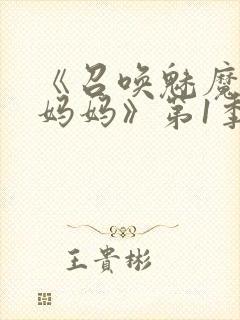 《召唤魅魔
妈妈》第1季
王貴彬